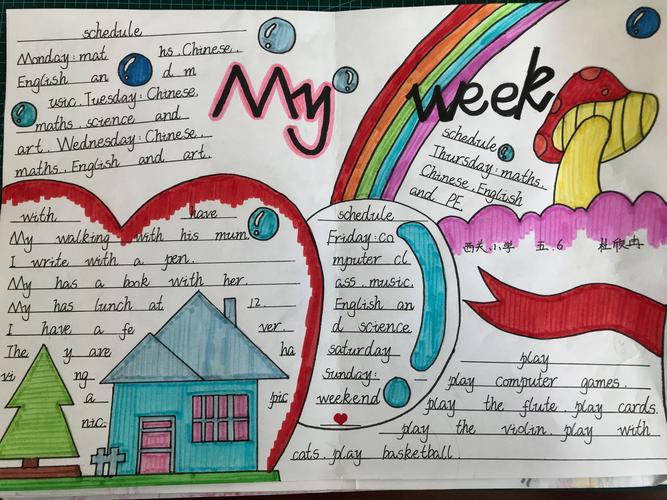 My week
schedule
Monday: mat hs. Chinese.
English an d m
usic. Tuesday: Chinese.
maths. science and
art. Wednesday: Chinese.
maths. English and art.
schedule
Thursday: maths.
Chinese. English
and PE.
西关小学 五.6 杜欣冉
with have
My walking with his mum.
I write with a pen.
My has a book with her.
My has lunch at 12.
I have a fe ver.
The y are ha
vi ng
a pic
nic.
schedule
Friday: co
mputer cl
ass. music.
English an
d science.
saturday
Sunday:
weekend
play
play computer games.
play the flute. play cards.
play the violin. play with
cats. play basketball.